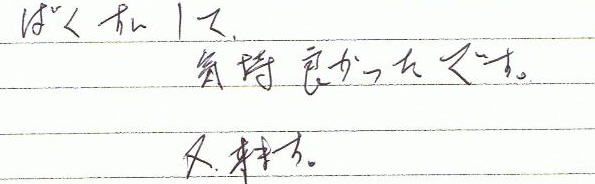 ばくすいして、
気持良かったです。
又、来ます。